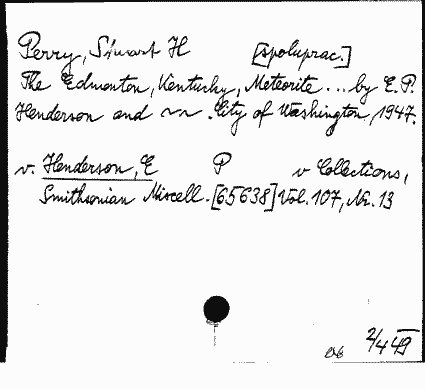 Perry, Stuart H [spoluprac.]
The Edmonton, Kentucky, Meteorite ... by E. P.
Henderson and ~~. City of Washington, 1947.
v. Henderson, E P v Collections,
Smithsonian Miscell. [65638] Vol. 107, Nr. 13
2/4 49